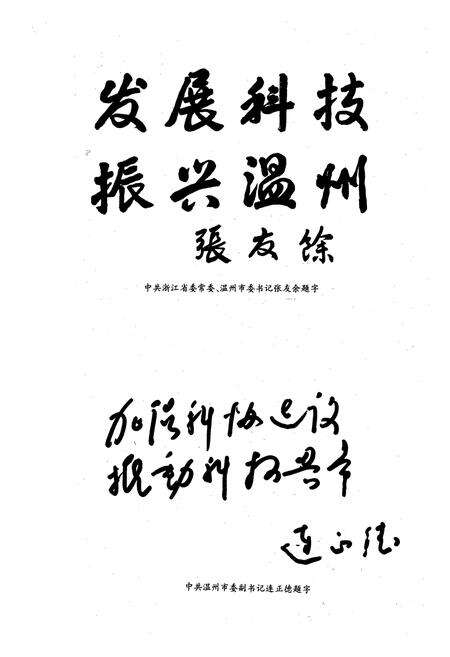 发展科技
振兴温州
張友餘
中共浙江省委常委、温州市委书记张友余题字
加强科协建设
推动科技兴市
连正德
中共温州市委副书记连正德题字